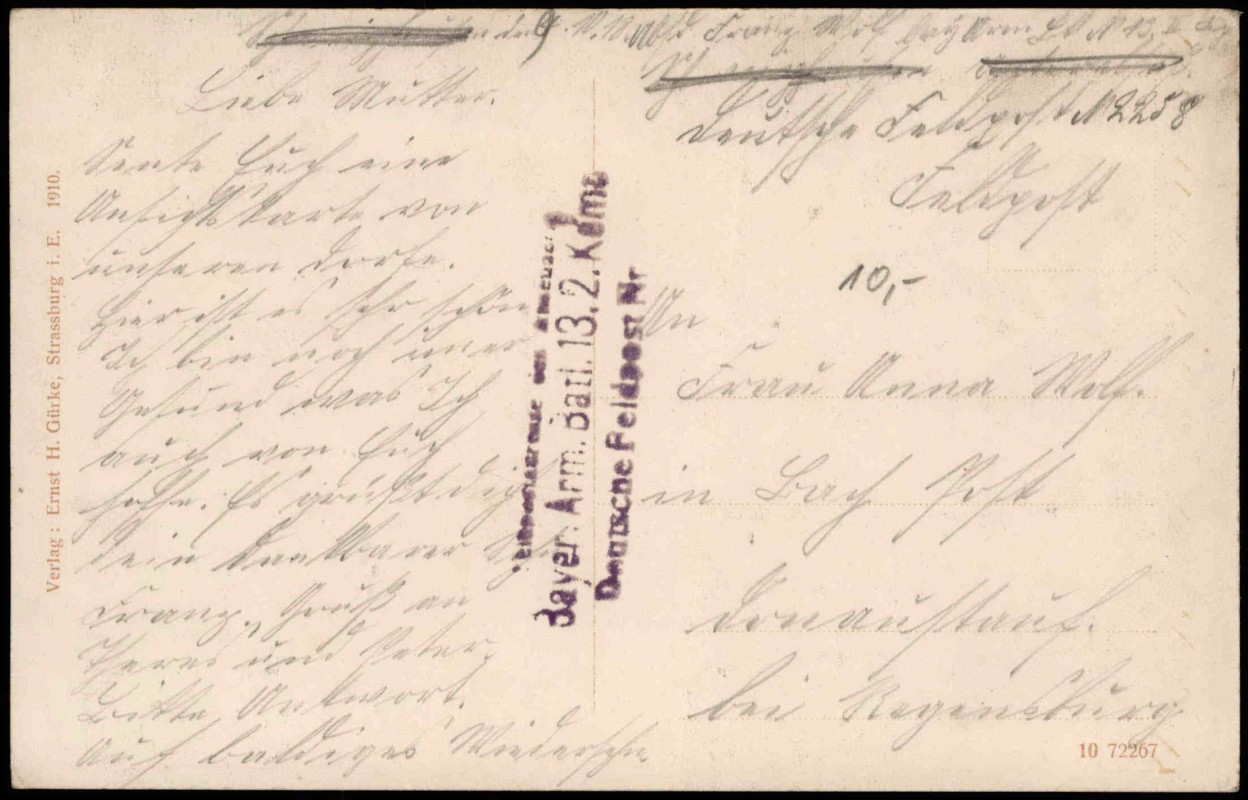 den 9.
Abs. Franz Wolf bay Arm Bt. N 13, 2. Kp
Deutsche Feldpost N 2258
Feldpost
10,-
Liebe Mutter.
Sente Euch eine
Ansichtskarte von
unseren Dorfe.
Hier ist es sehr schön
Ich bin noch imer
Gesund was Ich
auch von Euch
hoffe. Es grüßt dich
dein dankbarer Sohn
Franz. Gruß an
Theres und Peter.
Bitte Antwort.
Auf baldiges Wiedersehn
Bayer. Arm. Batl. 13. 2. Komp
Deutsche Feldpost Nr
An
Frau Anna Wolf.
in Bach Post
Donaustauf.
bei Regensburg
Verlag: Ernst H. Gürke, Strassburg i. E. 1910.
10 72267